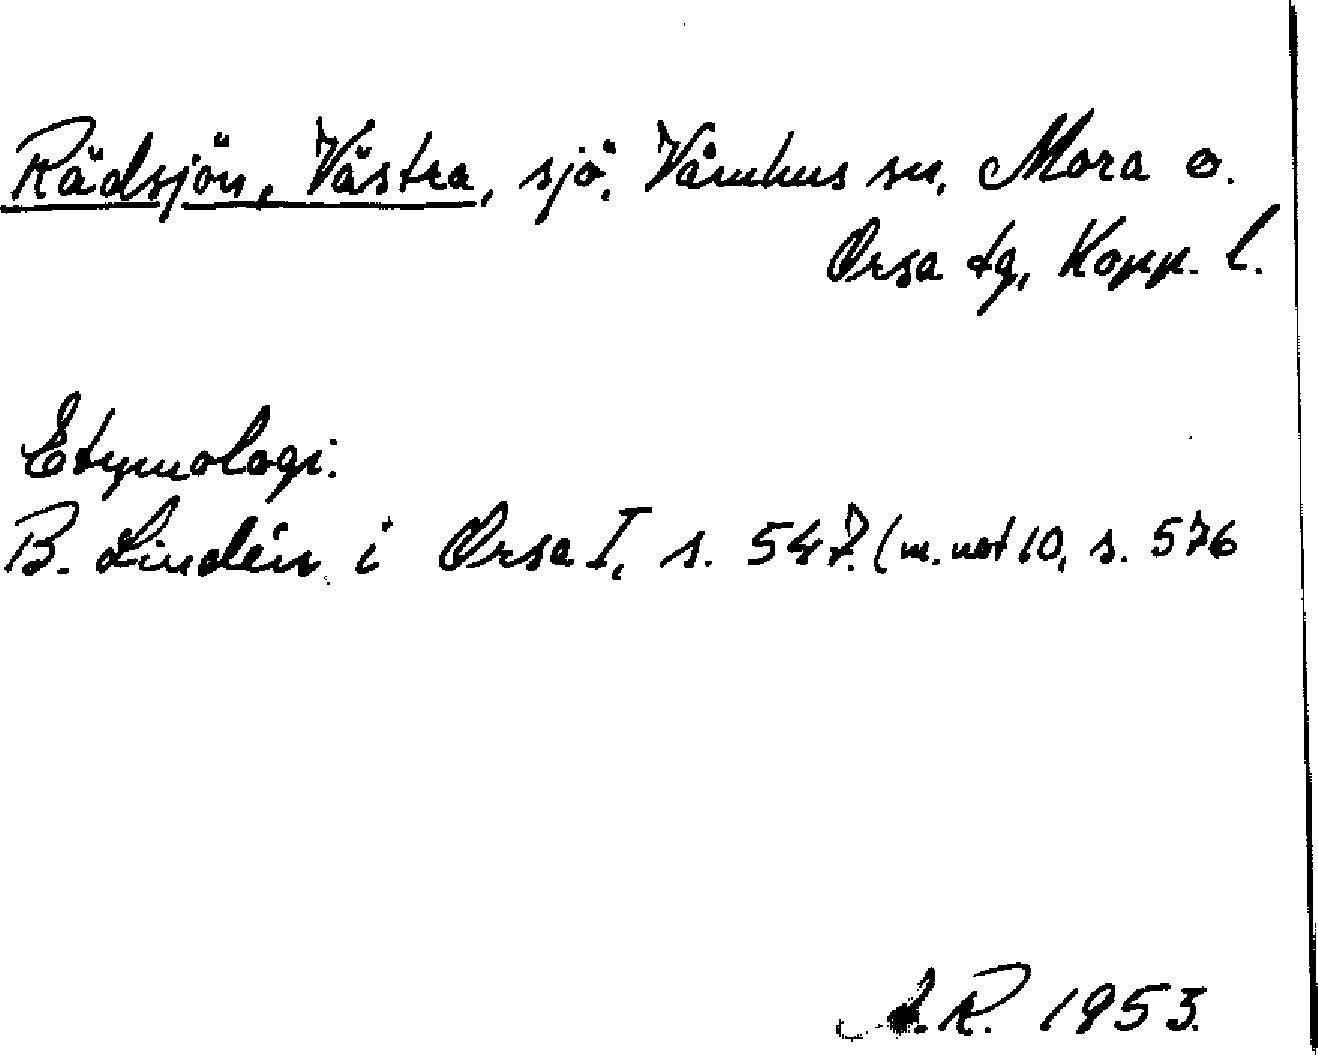 Rädsjön, Västra, sjö, Våmhus sn, Mora o.
Orsa tg, Kopp. l.
Etymologi:
B. Lindén i Orsa I, s. 547. (m. not 10, s. 576
A.R. 1953.